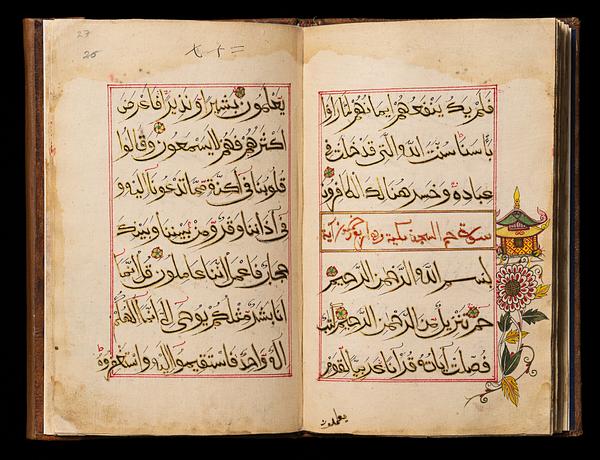 فلم يك ينفعهم ايمانهم لما راوا
باسنا سنت الله التي قد خلت في
عباده وخسر هنالك الكافرون
سورة حم السجدة مكية وهي آية
بسم الله الرحمن الرحيم
حم تنزيل من الرحمن الرحيم كتب
فصلت آياته قرآنا عربيا لقوم
يعلمون
يعلمون بشيرا ونذيرا فاعرض
اكثرهم فهم لا يسمعون وقالوا
قلوبنا في اكنة مما تدعونا اليه و
في آذاننا وقر ومن بيننا وبينك
حجاب فاعمل اننا عاملون قل انما
انا بشر مثلكم يوحى الي انما الهكم
اله واحد فاستقيموا اليه واستغفروه